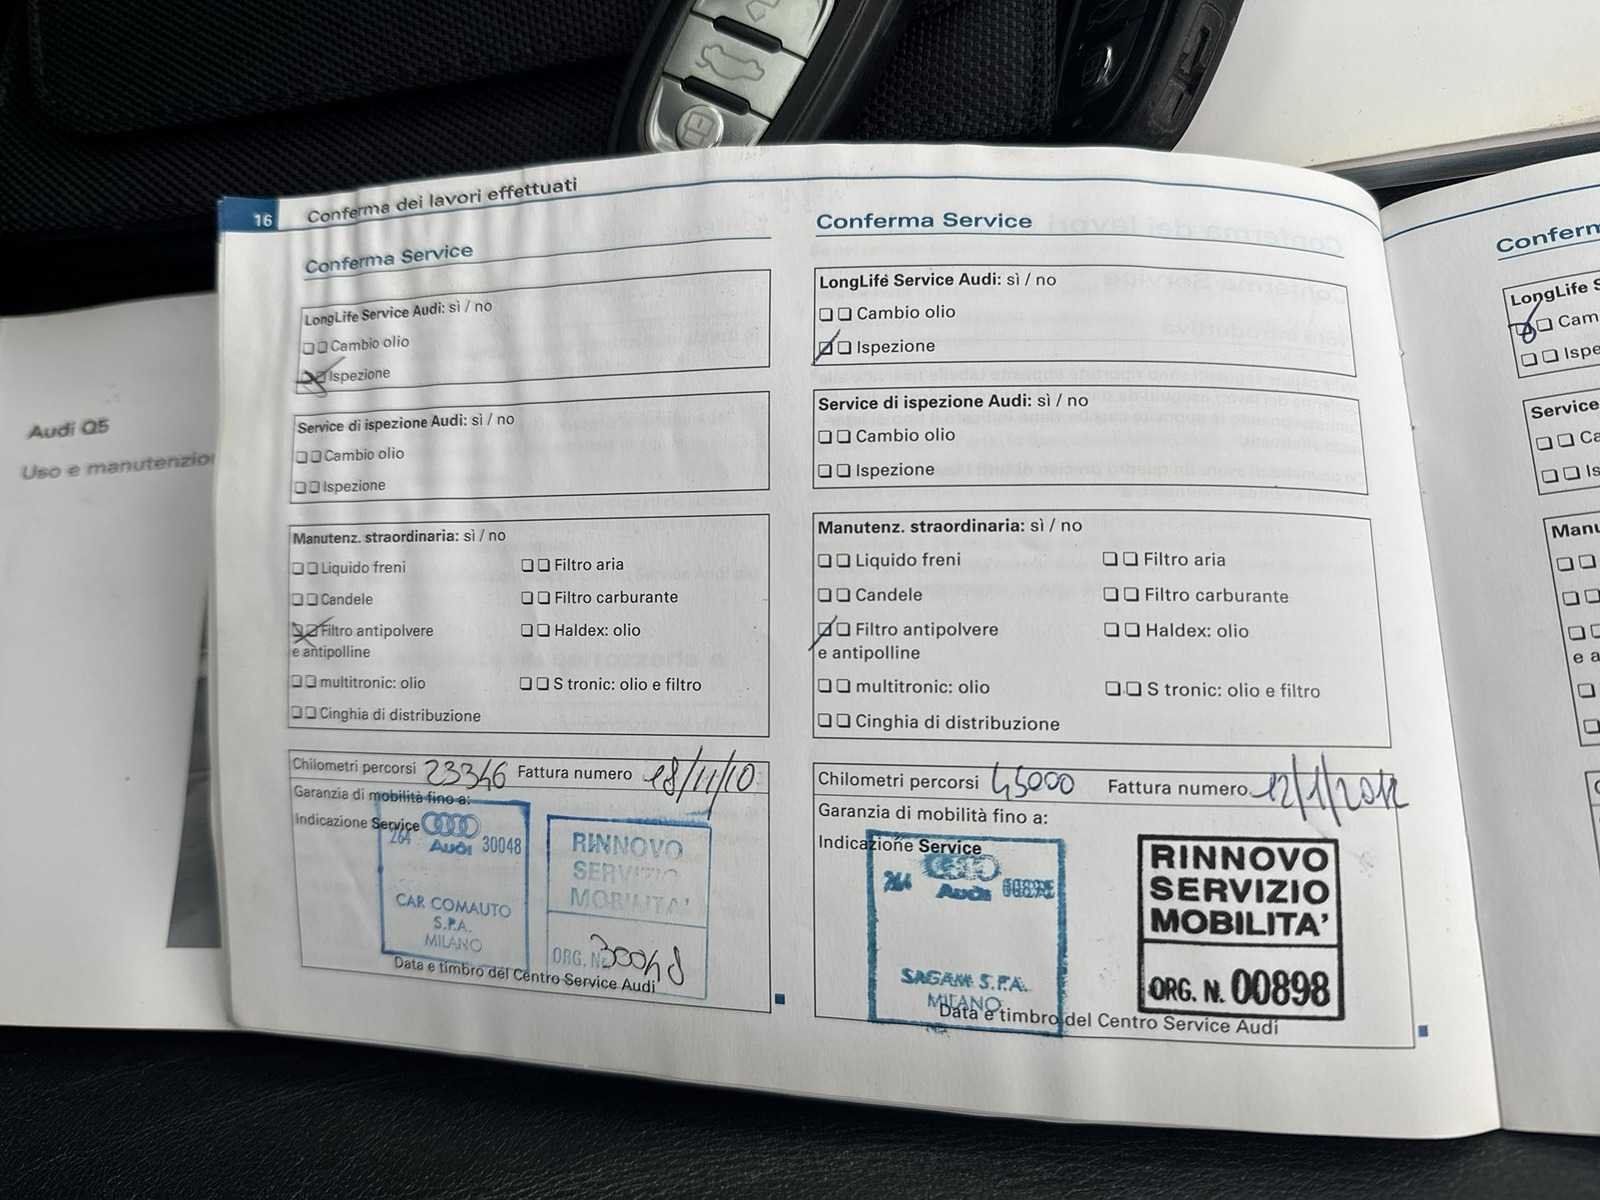 16 Conferma dei lavori effettuati
Conferma Service
LongLife Service Audi: sì / no
Cambio olio
Ispezione
Service di ispezione Audi: sì / no
Cambio olio
Ispezione
Manutenz. straordinaria: sì / no
Liquido freni
Filtro aria
Candele
Filtro carburante
Filtro antipolvere
e antipolline
Haldex: olio
multitronic: olio
S tronic: olio e filtro
Cinghia di distribuzione
Chilometri percorsi 23346 Fattura numero 18/11/10
Garanzia di mobilità fino a:
Indicazione Service
264 Audi 30048
CAR COMAUTO
S.P.A.
MILANO
RINNOVO
SERVIZIO
MOBILITA'
ORG. N. 30048
Data e timbro del Centro Service Audi
Conferma Service
LongLife Service Audi: sì / no
Cambio olio
Ispezione
Service di ispezione Audi: sì / no
Cambio olio
Ispezione
Manutenz. straordinaria: sì / no
Liquido freni
Filtro aria
Candele
Filtro carburante
Filtro antipolvere
e antipolline
Haldex: olio
multitronic: olio
S tronic: olio e filtro
Cinghia di distribuzione
Chilometri percorsi 45000 Fattura numero 12/1/2012
Garanzia di mobilità fino a:
Indicazione Service
264 Audi
SAGAM S.P.A.
MILANO
RINNOVO
SERVIZIO
MOBILITA'
ORG. N. 00898
Data e timbro del Centro Service Audi
Audi Q5
Uso e manutenzio
Conferm
LongLife S
Cam
Ispe
Service
Ca
Is
Manu
e a